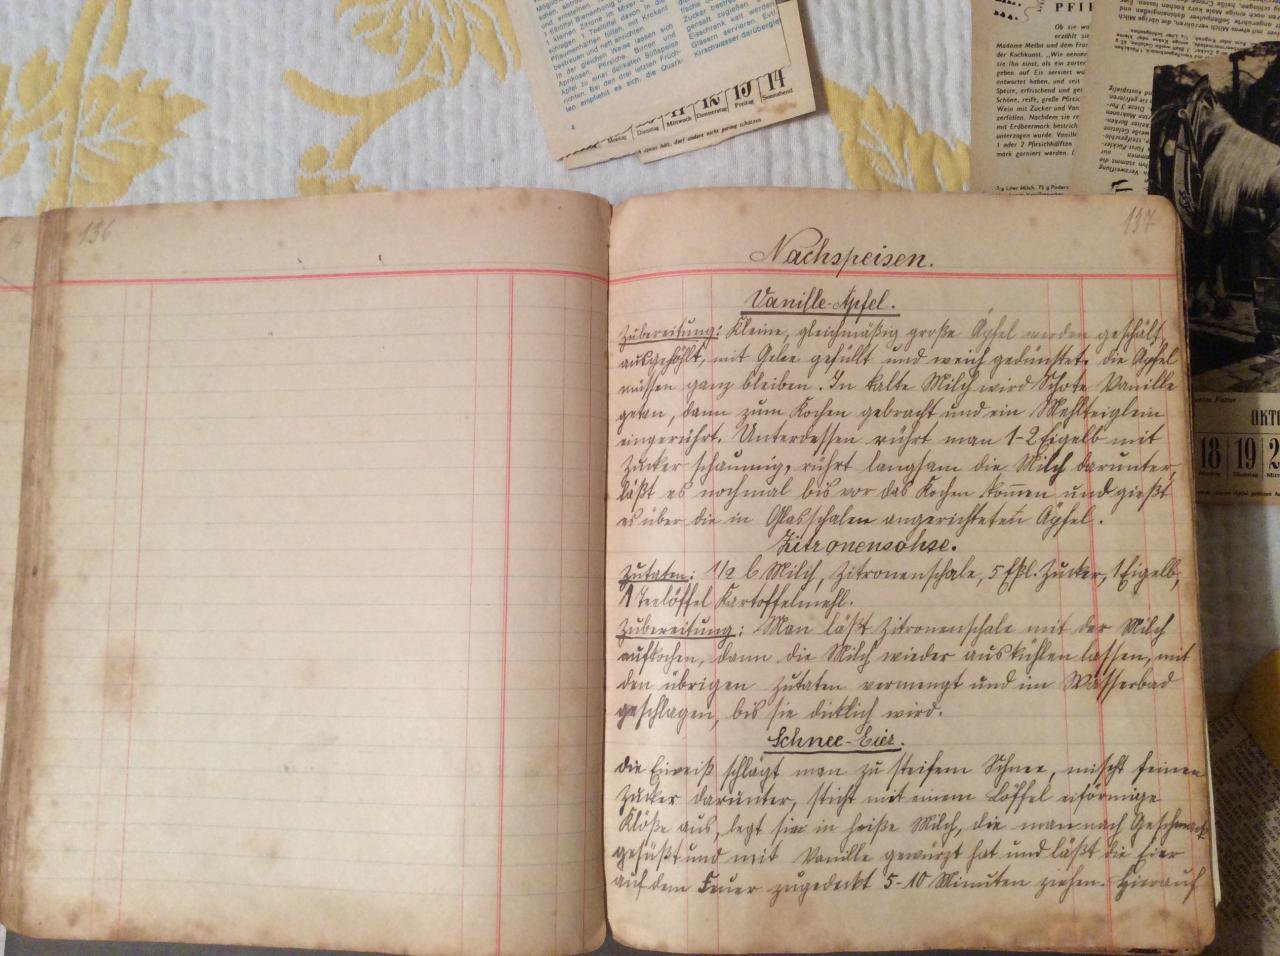 136
137
Nachspeisen.
Vanille-Apfel.
Zubereitung: Kleine, gleichmäßig große Äpfel werden geschält,
ausgehöhlt, mit Gelee gefüllt und weich gedünstet. Die Äpfel
müssen ganz bleiben. In kalte Milch wird Schote Vanille
getan, dann zum Kochen gebracht und ein Mehlteiglein
eingerührt. Unterdessen rührt man 1-2 Eigelb mit
Zucker schaumig, rührt langsam die Milch darunter,
läßt es nochmal bis vor das Kochen kommen und gießt
es über die in Glasschalen angerichteten Äpfel.
Zitronensohse.
Zutaten: 1/2 l Milch, Zitronenschale, 5 Eßl. Zucker, 1 Eigelb,
1 Teelöffel Kartoffelmehl.
Zubereitung: Man läßt Zitronenschale mit der Milch
aufkochen, dann die Milch wieder auskühlen lassen, mit
den übrigen Zutaten vermengt und im Wasserbad
geschlagen, bis sie dicklich wird.
Schnee-Eier.
Die Eiweiß schlägt man zu steifem Schnee, mischt feinen
Zucker darunter, sticht mit einem Löffel eiförmige
Klöße aus, legt sie in heiße Milch, die man nach Geschmack
gesüßt und mit Vanille gewürzt hat und läßt die Eier
auf dem Feuer zugedeckt 5-10 Minuten ziehen. Hierauf
Gläsern servieren. Evtl.
Kirschwasser darübergie
4
Montag
Dienstag
Mittwoch
Donnerstag
Freitag
Sonnabend
11 12 13 14
Madame Melba und dem
der Kochkunst.
OKTO
18 19 2